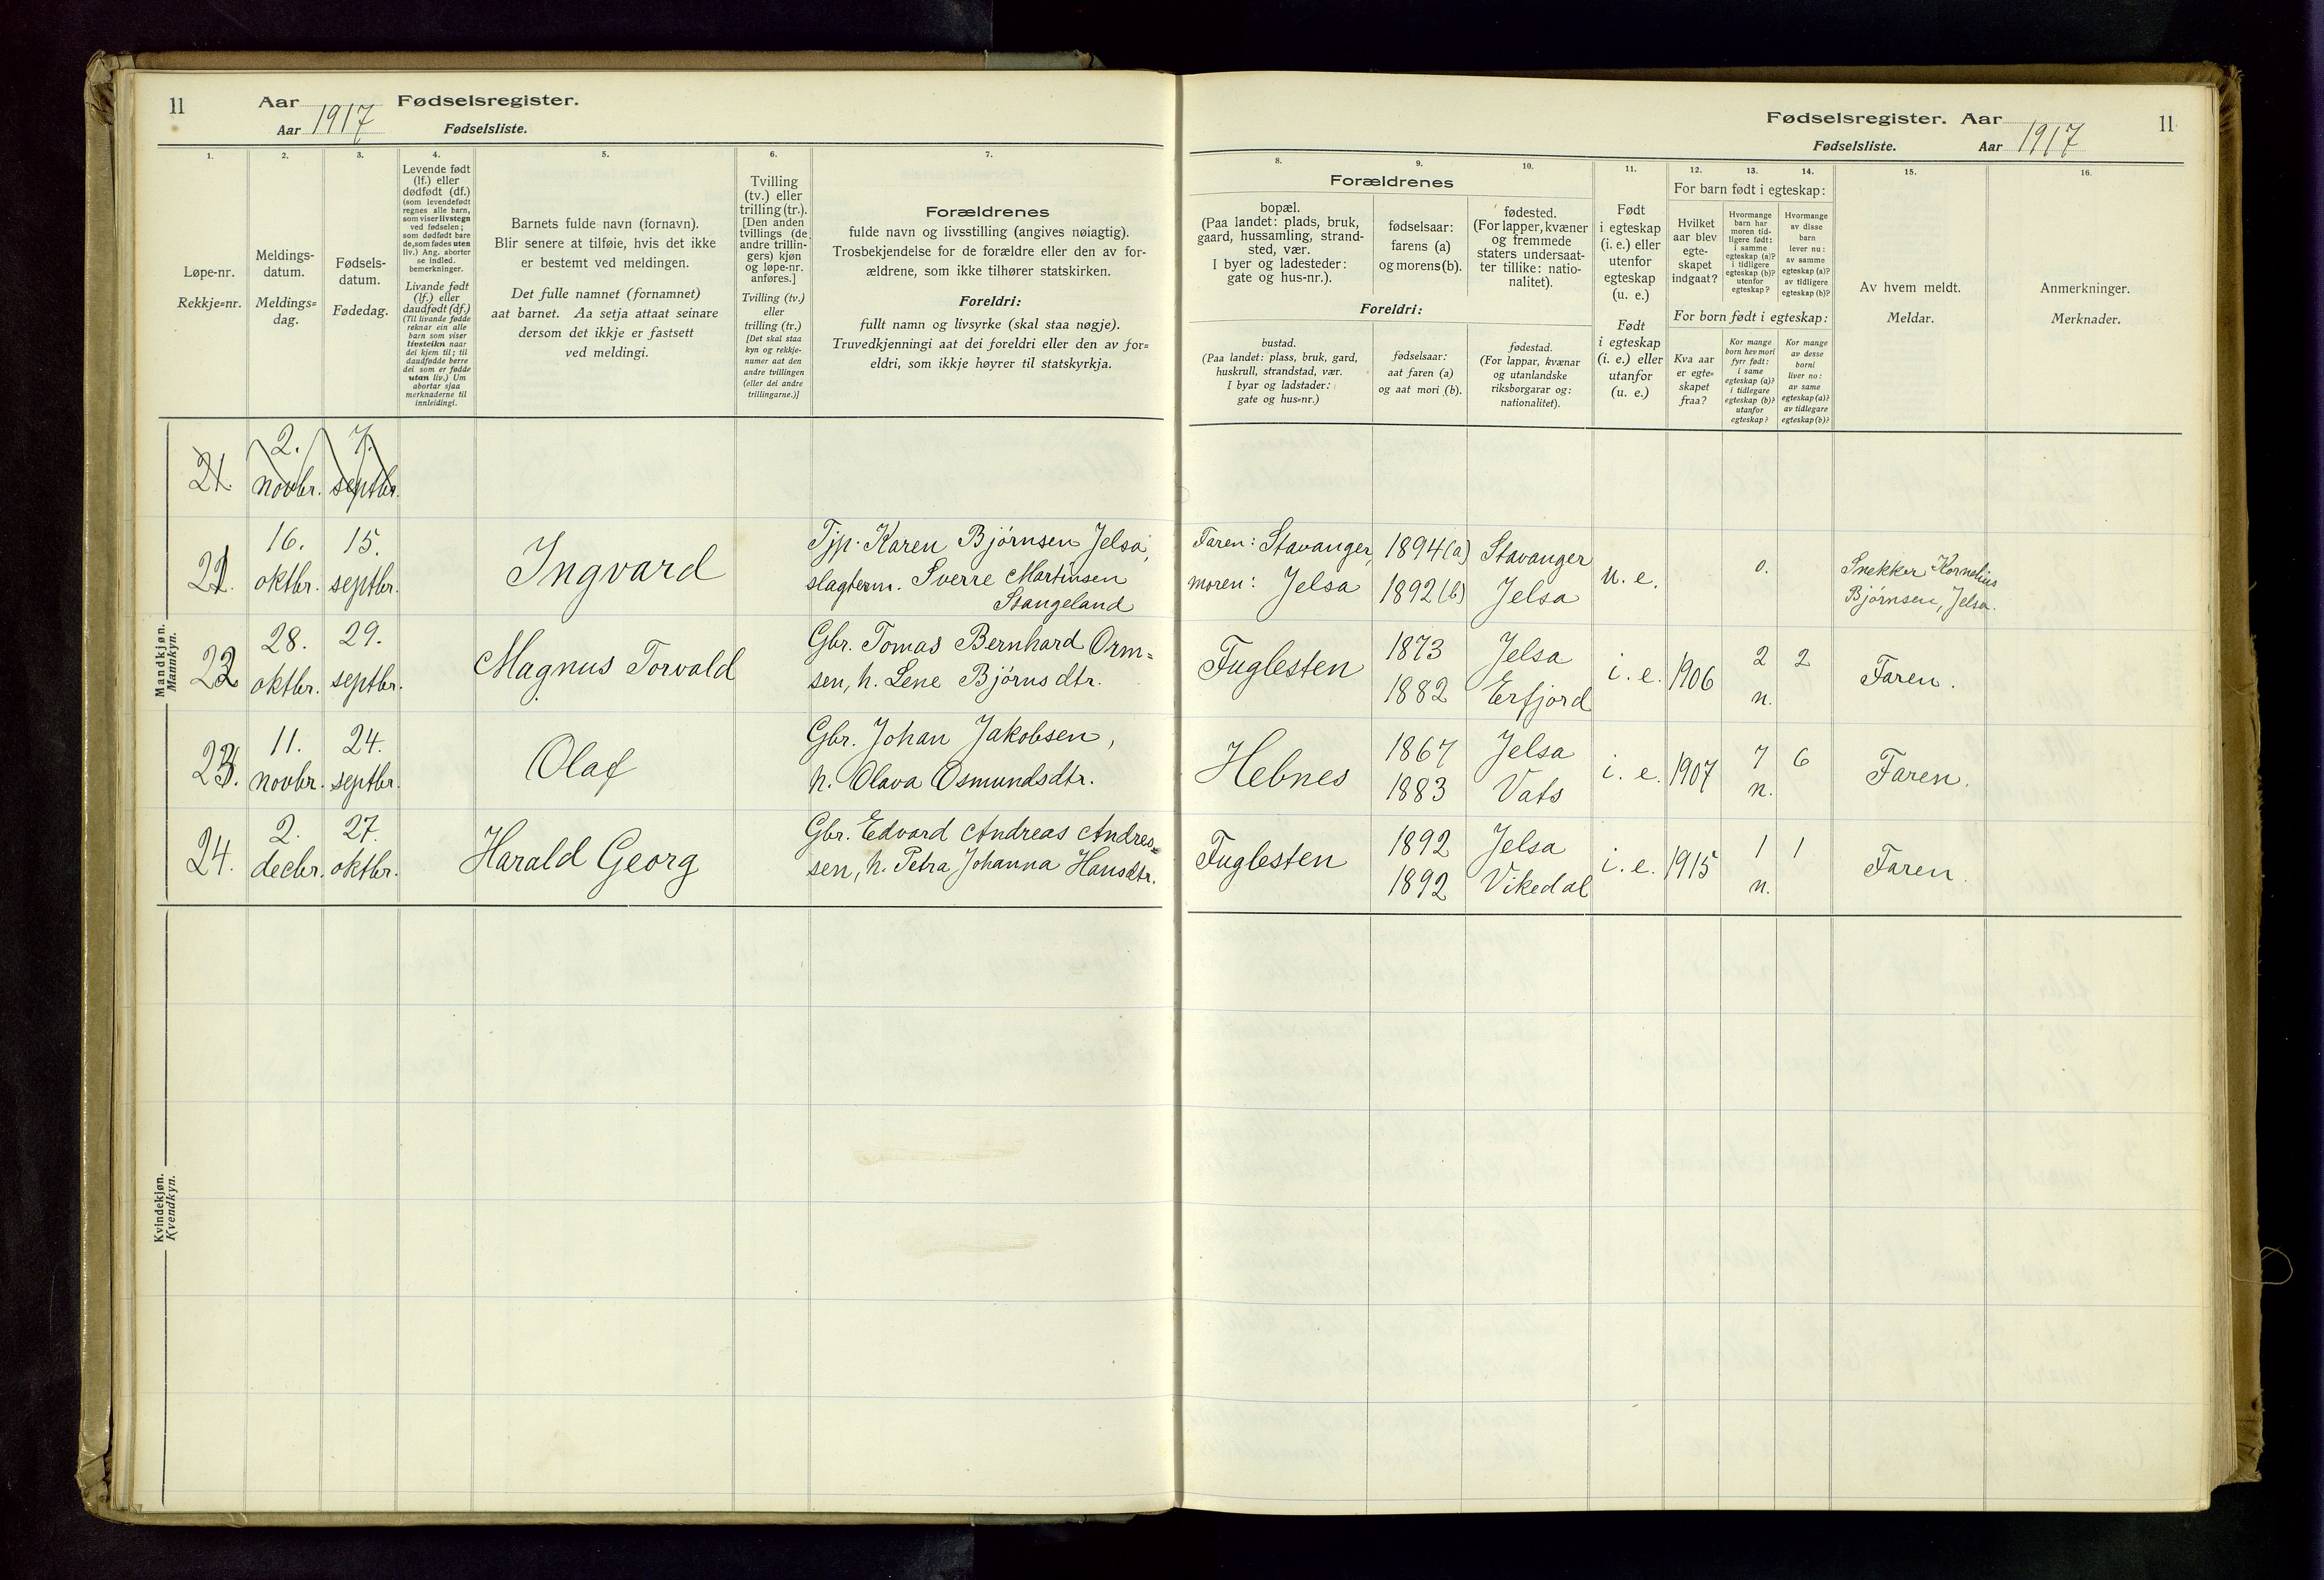 11 Aar Fødselsregister.
Aar 1917 Fødselsliste.
1.
Løpe-nr.
Rekkje=nr.
2.
Meldings-
datum.
Meldings=
dag.
3.
Fødsels-
datum.
Fødedag.
4.
Levende født
(lf.) eller
dødfødt (df.)
(som levendefødt
regnes alle barn,
som viser livstegn
ved fødselen;
som dødfødt bare
de, som fødes uten
liv.) Ang. aborter
se indled.
bemerkninger.
Livande født
(lf.) eller
daudfødt (df.)
(Til livande fødde
reknar ein alle
barn som viser
livsteikn naar
dei kjem til; til
daudfødde berre
dei som er fødde
utan liv.) Um
abortar sjaa
merknaderne til
innleidingi.
5.
Barnets fulde navn (fornavn).
Blir senere at tilføie, hvis det ikke
er bestemt ved meldingen.
Det fulle namnet (fornamnet)
aat barnet. Aa setja attaat seinare
dersom det ikkje er fastsett
ved meldingi.
6.
Tvilling
(tv.) eller
trilling (tr.).
[Den anden
tvillings (de
andre trillin-
gers) kjøn
og løpe-nr.
anføres.]
Tvilling (tv.)
eller
trilling (tr.)
[Det skal staa
kyn og rekkje-
numer aat den
andre tvillingen
(eller dei andre
trillingarne.)]
7.
Forældrenes
fulde navn og livsstilling (angives nøiagtig).
Trosbekjendelse for de forældre eller den av for-
ældrene, som ikke tilhører statskirken.
Foreldri:
fullt namn og livsyrke (skal staa nøgje).
Truvedkjenningi aat dei foreldri eller den av for=
eldri, som ikkje høyrer til statskyrkja.
Mandkjøn.
Mannkyn.
21. 2. novbr. 7. septbr.
21. 16. oktbr. 15. septbr. Ingvard Tjp. Karen Bjørnsen Jelsa,
slagterm. Sverre Martinsen
Stangeland
22 28. oktbr. 29. septbr. Magnus Torvald Gbr. Tomas Bernhard Orm=
sen, h. Lene Bjørnsdtr.
23. 11. novbr. 24. septbr. Olaf Gbr. Johan Jakobsen,
h. Olava Osmundsdtr.
24. 2. decbr. 27. oktbr. Harald Georg Gbr. Edvard Andreas Andres=
sen, h. Petra Johanna Hansdtr.
Kvindekjøn.
Kvendkyn.
Fødselsregister. Aar 11
Fødselsliste. Aar 1917
8.
Forældrenes
bopæl.
(Paa landet: plads, bruk,
gaard, hussamling, strand-
sted, vær.
I byer og ladesteder:
gate og hus-nr.).
Foreldri:
bustad.
(Paa landet: plass, bruk, gard,
huskrull, strandstad, vær.
I byar og ladstader:
gate og hus=nr.)
9.
fødselsaar:
farens (a)
og morens (b).
fødselsaar:
aat faren (a)
og aat mori (b).
10.
fødested.
(For lapper, kvæner
og fremmede
staters undersaat-
ter tillike: natio-
nalitet).
fødestad.
(For lappar, kvænar
og utanlandske
riksborgarar og:
nationalitet).
11.
Født
i egteskap
(i. e.) eller
utenfor
egteskap
(u. e.)
Født
i egteskap
(i. e.) eller
utanfor
(u. e.)
12.
For barn født i egteskap:
Hvilket
aar blev
egte-
skapet
indgaat?
For born født i egteskap:
Kva aar
er egte=
skapet
fraa?
13.
Hvormange
barn har
moren tid-
ligere født:
i samme
egteskap (a)?
i tidligere
egteskap (b)?
utenfor
egteskap?
Kor mange
born hev mori
fyrr født:
i same
egteskap (a)?
i tidlegare
egteskap (b)?
utanfor
egteskap?
14.
Hvormange
av disse
barn
lever nu:
av samme
egteskap (a)?
av tidligere
egteskap (b)?
Kor mange
av desse
borni
liver no:
av same
egteskap (a)?
av tidlegare
egteskap (b)?
15.
Av hvem meldt.
Meldar.
16.
Anmerkninger.
Merknader.
Faren: Stavanger, 1894 (a) Stavanger
moren: Jelsa 1892 (b) Jelsa u. e. 0. Snekker Kornelius
Bjørnsen, Jelsa.
Fuglesten 1873 Jelsa
1882 Erfjord i. e. 1906 2 n. 2 Faren.
Hebnes 1867 Jelsa
1883 Vats i. e. 1907 7 n. 6 Faren.
Fuglesten 1892 Jelsa
1892 Vikedal i. e. 1915 1 n. 1 Faren.